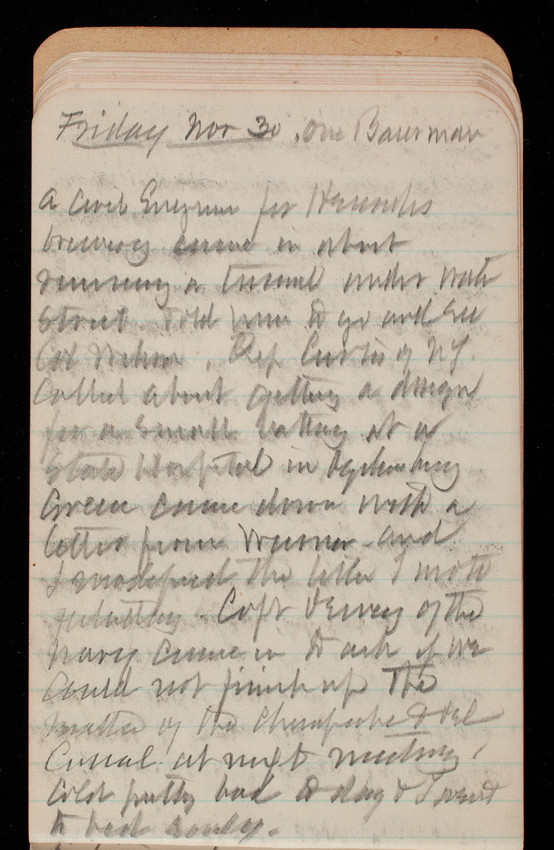 Friday Nov 30, One Bauerman
a Civil Engineer for
brewery came in about
running a tunnel under Water
Street. Told him to go and see
Col. Rep Curtis of N.Y.
called about getting a design
for a small battery at a
State Hospital in Ogdensburg
Green came down with a
letter from and
I modified the letter I wrote
yesterday. Capt of the
Navy came in to ask if we
could not finish up the
matter of the Chesapeake & Del
Canal at next meeting.
Cold pretty bad to day & I went
to bed early.